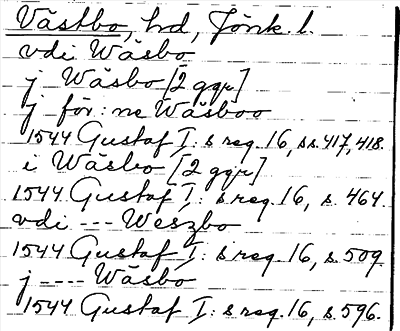 Västbo, hd, Jönk. l.
vdi Wäsbo
j Wäsbo [2 ggr]
j för:ne Wäsboo
1544 Gustaf I:s reg. 16, ss. 417, 418.
i Wäsbo [2 ggr]
1544 Gustaf I:s reg. 16, s. 464.
vdi --- Weszbo
1544 Gustaf I:s reg. 16, s. 509
j ---- Wäsbo
1544 Gustaf I:s reg. 16, s. 596.